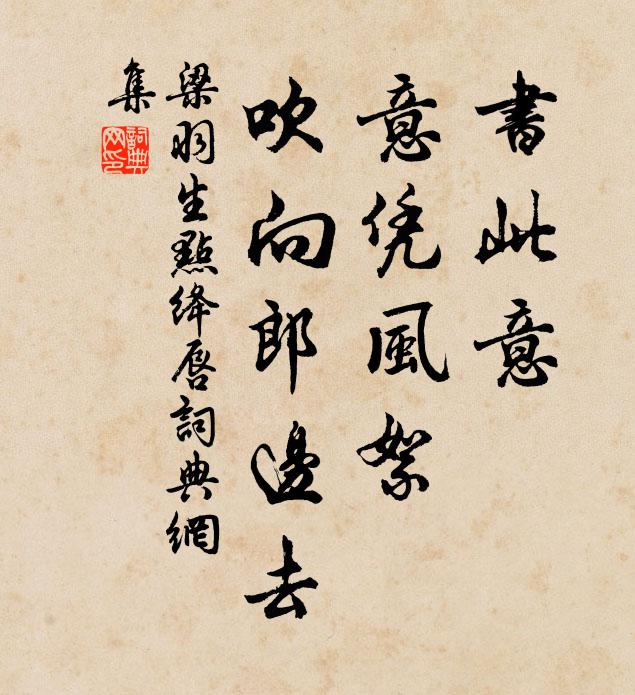 書此意
意凭風絮
吹向郎邊去
梁羽生點絳唇詞典網
集
詞典網印